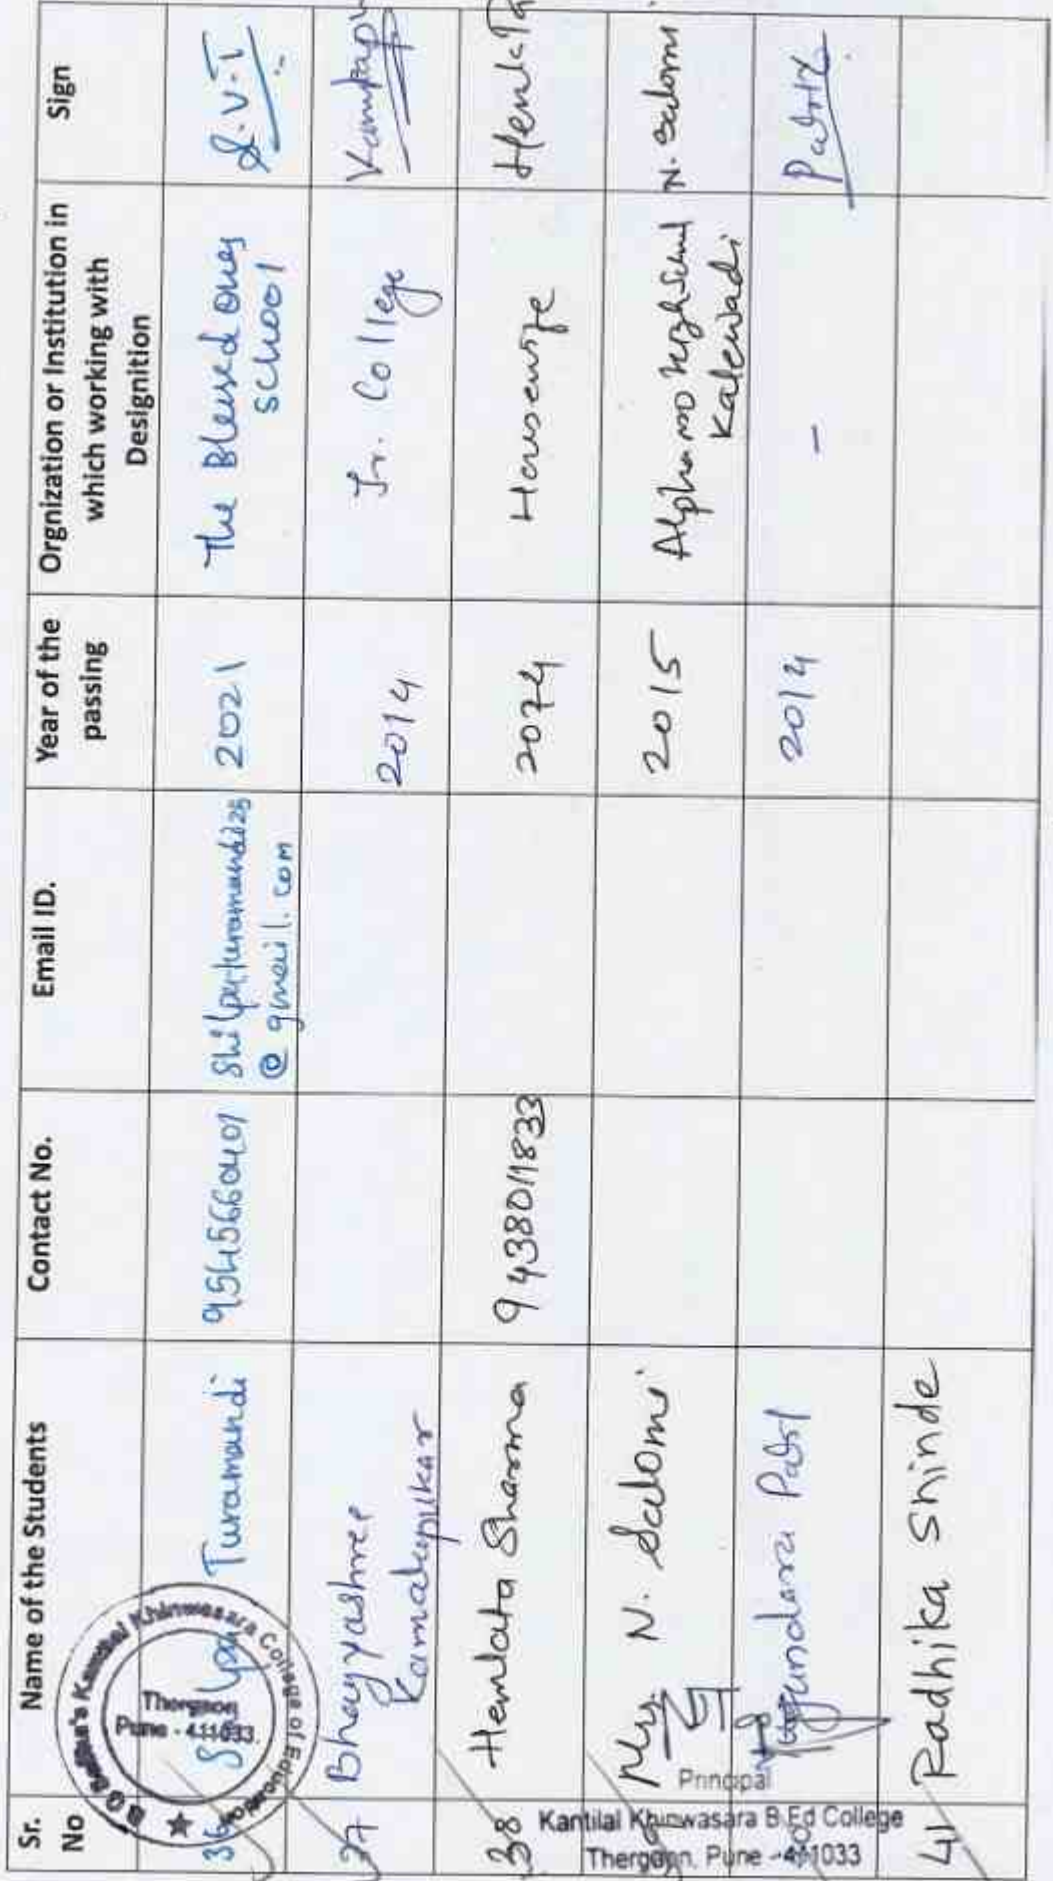 Sr. No
Name of the Students
Contact No.
Email ID.
Year of the passing
Orgnization or Institution in which working with Designition
Sign
36
Turamandi
9545660401
@ gmail.com
2021
The Blessed Ones
School
S.V.T
37
Bhagyashree
2014
Jr. College
38
Hemlata Sharma
9438011833
2074
Housewife
Mrs. N. Salomi
2015
Alphanso High School
Kalewadi
N. Salomi
2014
-
41
Radhika Shinde
Kantilal Khinwasara College of Education
Thergaon
Pune - 411033
Principal
Kantilal Khinwasara B.Ed College
Thergaon, Pune - 411033